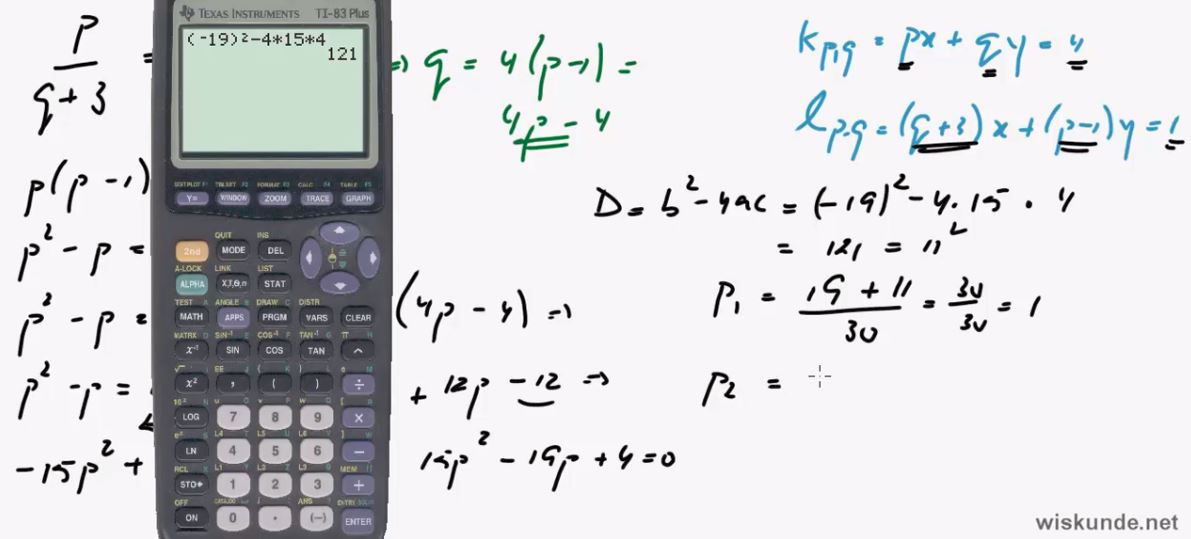 p / (q + 3) =
p(p - 1)
p² - p =
p² - p =
p² - p =
-15p² +
TEXAS INSTRUMENTS TI-83 Plus
(-19)²-4*15*4
121
STAT PLOT F1 TBLSET F2 FORMAT F3 CALC F4 TABLE F5
Y= WINDOW ZOOM TRACE GRAPH
QUIT INS
2nd MODE DEL
A-LOCK LINK LIST
ALPHA X,T,θ,n STAT
TEST A ANGLE B DRAW C DISTR
MATH APPS PRGM VARS CLEAR
MATRX D SIN⁻¹ E COS⁻¹ F TAN⁻¹ G π H
x⁻¹ SIN COS TAN ^
x² , ( ) ÷
LOG 7 8 9 ×
LN 4 5 6 −
RCL X L1 Y L2 Z L3 MEM
STO→ 1 2 3 +
OFF CATALOG ANS ENTRY SOLVE
ON 0 . (−) ENTER
=> q = 4(p-1) =
4p - 4
(4p - 4) =>
+ 12p - 12 =>
15p² - 19p + 4 = 0
k p,q = px + qy = 4
l p,q = (q+3)x + (p-1)y = 1
D = b² - 4ac = (-19)² - 4 · 15 · 4
= 121 = 11²
p₁ = (19 + 11) / 30 = 30/30 = 1
p₂ =
wiskunde.net